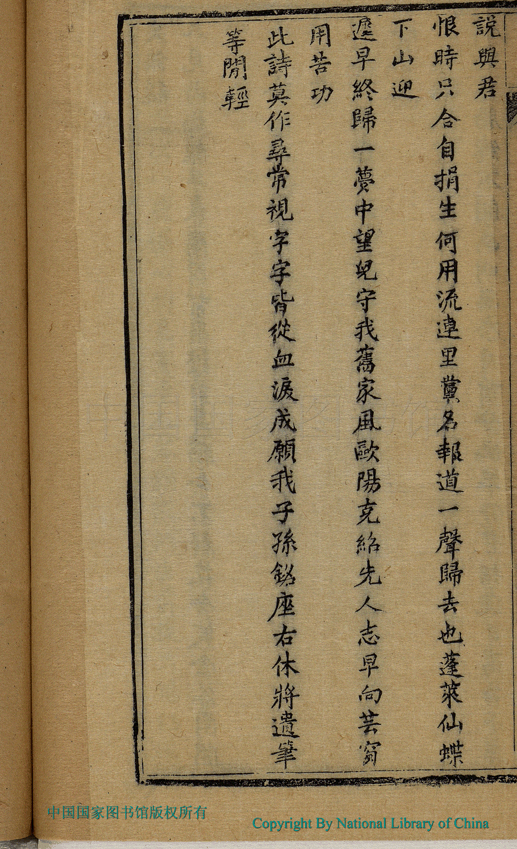 說與君
恨時只合自捐生何用流連里黨名報道一聲歸去也蓬萊仙蝶
下山迎
遲早終歸一夢中望兒守我舊家風歐陽克紹先人志早向芸窗
用苦功
此詩莫作尋常視字字皆從血淚成願我子孫銘座右休將遺筆
等閒輕
中国国家图书馆版权所有
Copyright By National Library of China